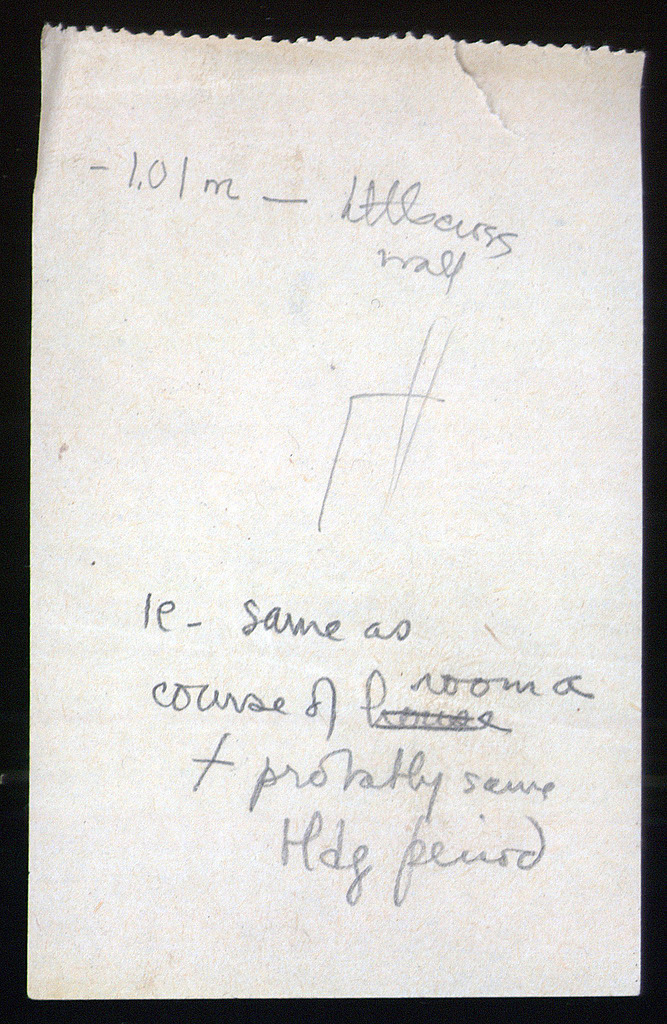 - 1.01 m — little cross
wall
ie - same as
course of house room a
+ probably same
bldg period